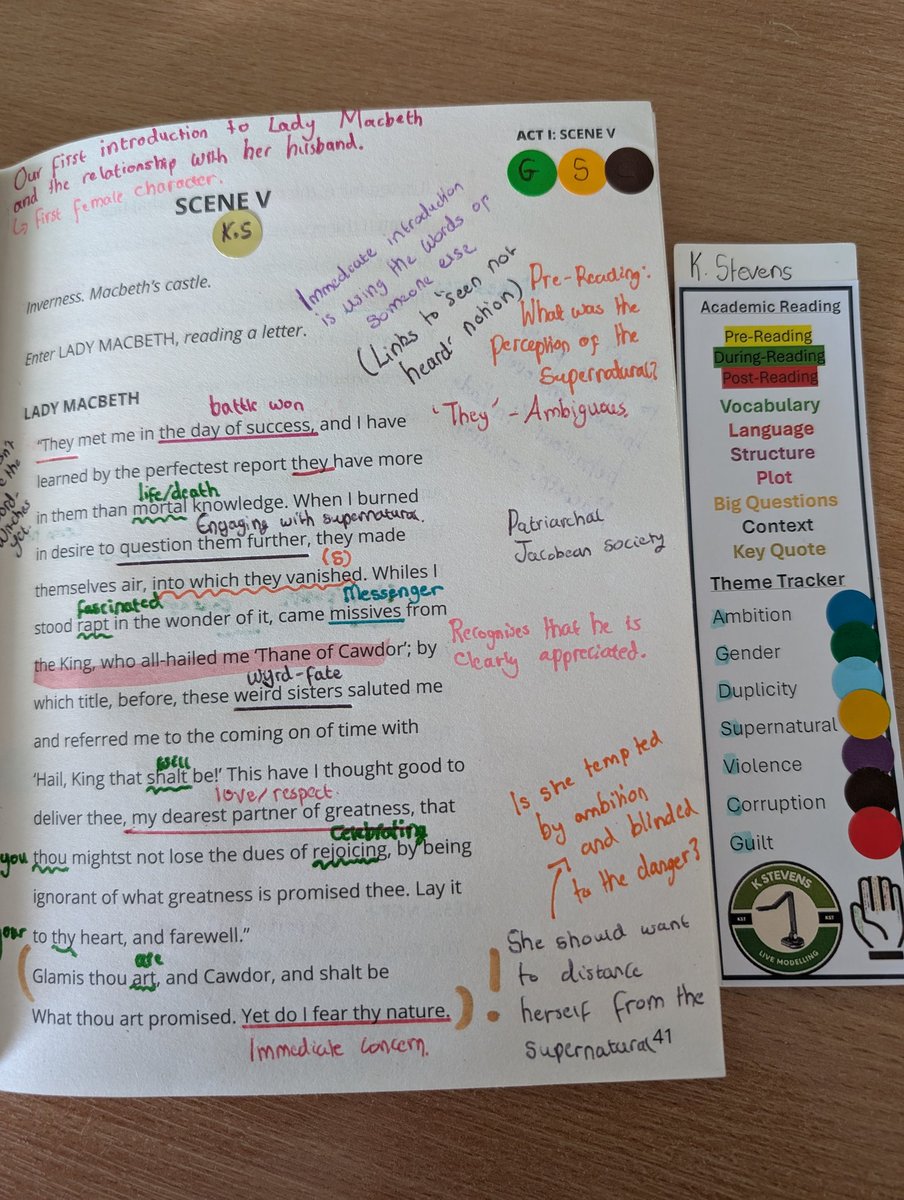 Our first introduction to Lady Macbeth
and the relationship with her husband.
↳ First female character.
ACT I: SCENE V
G S
SCENE V
K.S
Immediate introduction
is using the words of
someone else
(Links to 'seen not
heard' notion)
Inverness. Macbeth's castle.
Enter LADY MACBETH, reading a letter.
Pre-Reading:
What was the
perception of the
Supernatural?
LADY MACBETH
battle won
"They met me in the day of success, and I have
'They' - Ambiguous
learned by the perfectest report they have more
life/death
in them than mortal knowledge. When I burned
Engaging with supernatural.
in desire to question them further, they made
Patriarchal
Jacobean society
(S)
themselves air, into which they vanished. Whiles I
fascinated
Messenger
stood rapt in the wonder of it, came missives from
the King, who all-hailed me 'Thane of Cawdor'; by
Recognises that he is
clearly appreciated.
wyrd-fate
which title, before, these weird sisters saluted me
and referred me to the coming on of time with
will
'Hail, King that shalt be!' This have I thought good to
love/respect
deliver thee, my dearest partner of greatness, that
celebrating
you
thou mightst not lose the dues of rejoicing, by being
ignorant of what greatness is promised thee. Lay it
Is she tempted
by ambition
and blinded
to the danger?
to thy heart, and farewell."
are
Glamis thou art, and Cawdor, and shalt be
What thou art promised. Yet do I fear thy nature.
Immediate concern.
She should want
to distance
herself from the
supernatural
41
K. Stevens
Academic Reading
Pre-Reading
During-Reading
Post-Reading
Vocabulary
Language
Structure
Plot
Big Questions
Context
Key Quote
Theme Tracker
Ambition
Gender
Duplicity
Supernatural
Violence
Corruption
Guilt
K STEVENS
KST KST
LIVE MODELLING